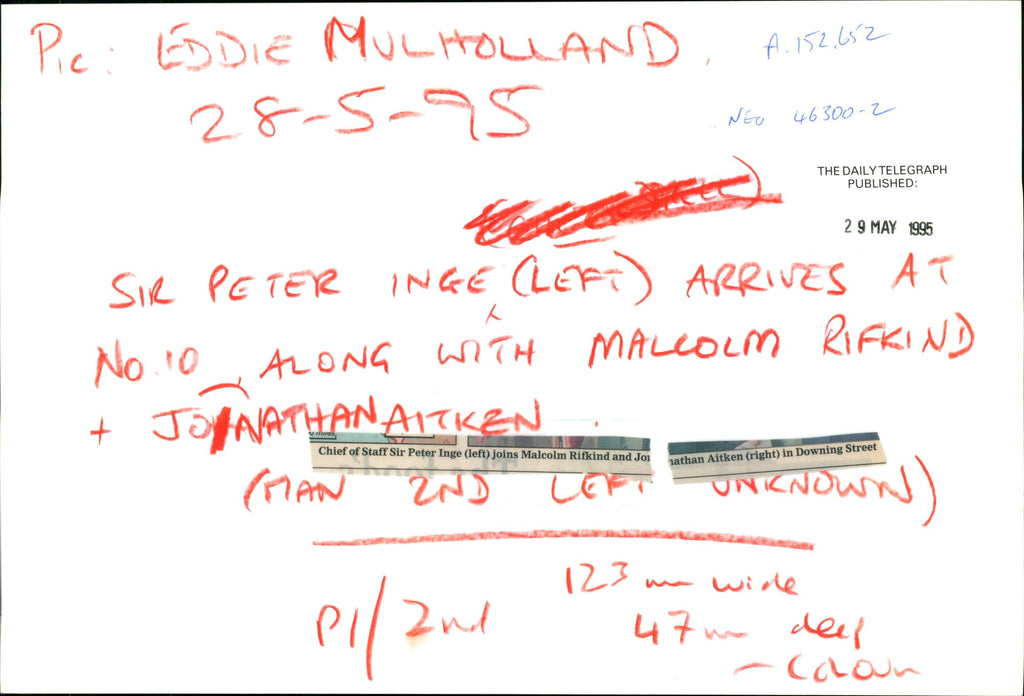 Pic: EDDIE MULHOLLAND.
A.152,652
28-5-95
NEG 46300-2
THE DAILY TELEGRAPH
PUBLISHED:
29 MAY 1995
SIR PETER INGE (LEFT) ARRIVES AT
No.10, ALONG WITH MALCOLM RIFKIND
+ JONATHAN AITKEN.
Chief of Staff Sir Peter Inge (left) joins Malcolm Rifkind and Jonathan Aitken (right) in Downing Street
(MAN 2ND LEFT UNKNOWN)
P1/2nd
123 mm wide
47mm deep
- Colour